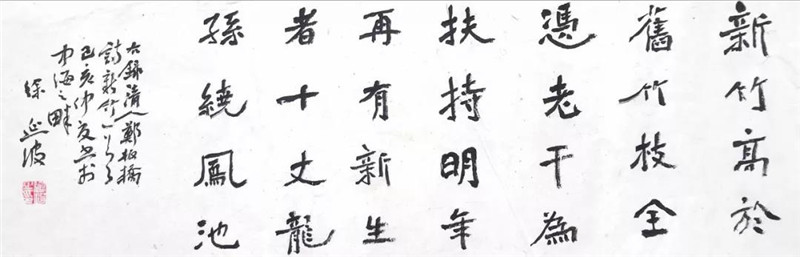 新竹高於
舊竹枝全
憑老干為
扶持明年
再有新生
者十丈龍
孫繞鳳池
右錄清人鄭板橋
詩新竹一首
己亥仲夏書於
中海之畔
徐延波